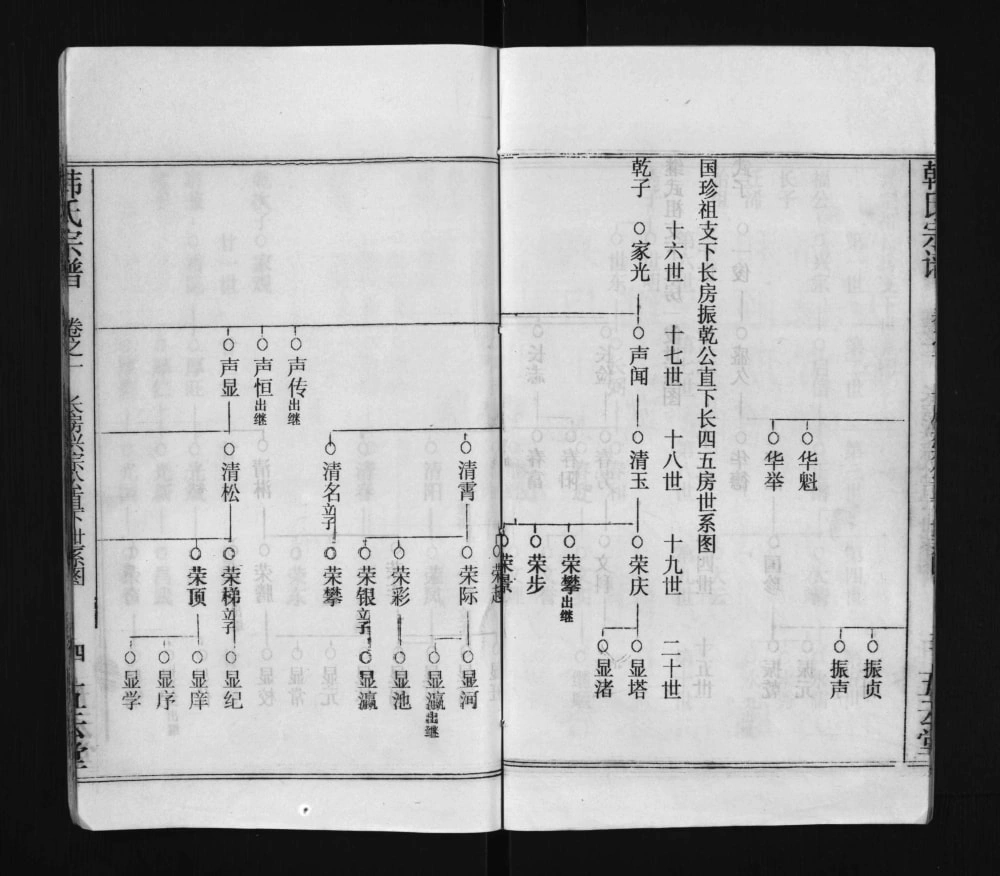 韩氏宗谱
华魁
华举
振贡
振声
五云堂
国珍祖支下长房振乾公直下长四五房世系图
十六世 十七世 十八世 十九世 二十世
乾子 家光 声闻 清玉 荣庆 显塔
显渚
荣攀出继
荣步
荣景
荣起
清霄 荣际 显河
显瀛出继
荣彩 显池
荣银立子 显瀛
清名立子 荣攀
声传出继
声恒出继
声显 清松 荣梯立子 显纪
荣顶 显庠
显序
显学
韩氏宗谱 卷之一 长房兴宗公直下世系图 四 五云堂